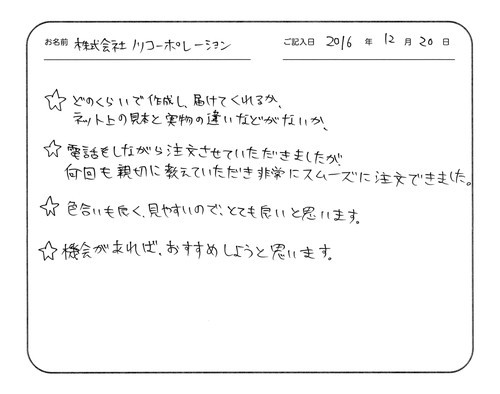 お名前 株式会社 ノリコーポレーション ご記入日 2016 年 12 月 20 日
☆ どのくらいで作成し、届けてくれるか、
ネット上の見本と実物の違いなどがないか、
☆ 電話もしながら注文させていただきましたが
何回も親切に教えていただき非常にスムーズに注文できました。
☆ 色合いも良く、見やすいので、とても良いと思います。
☆ 機会があれば、おすすめしようと思います。